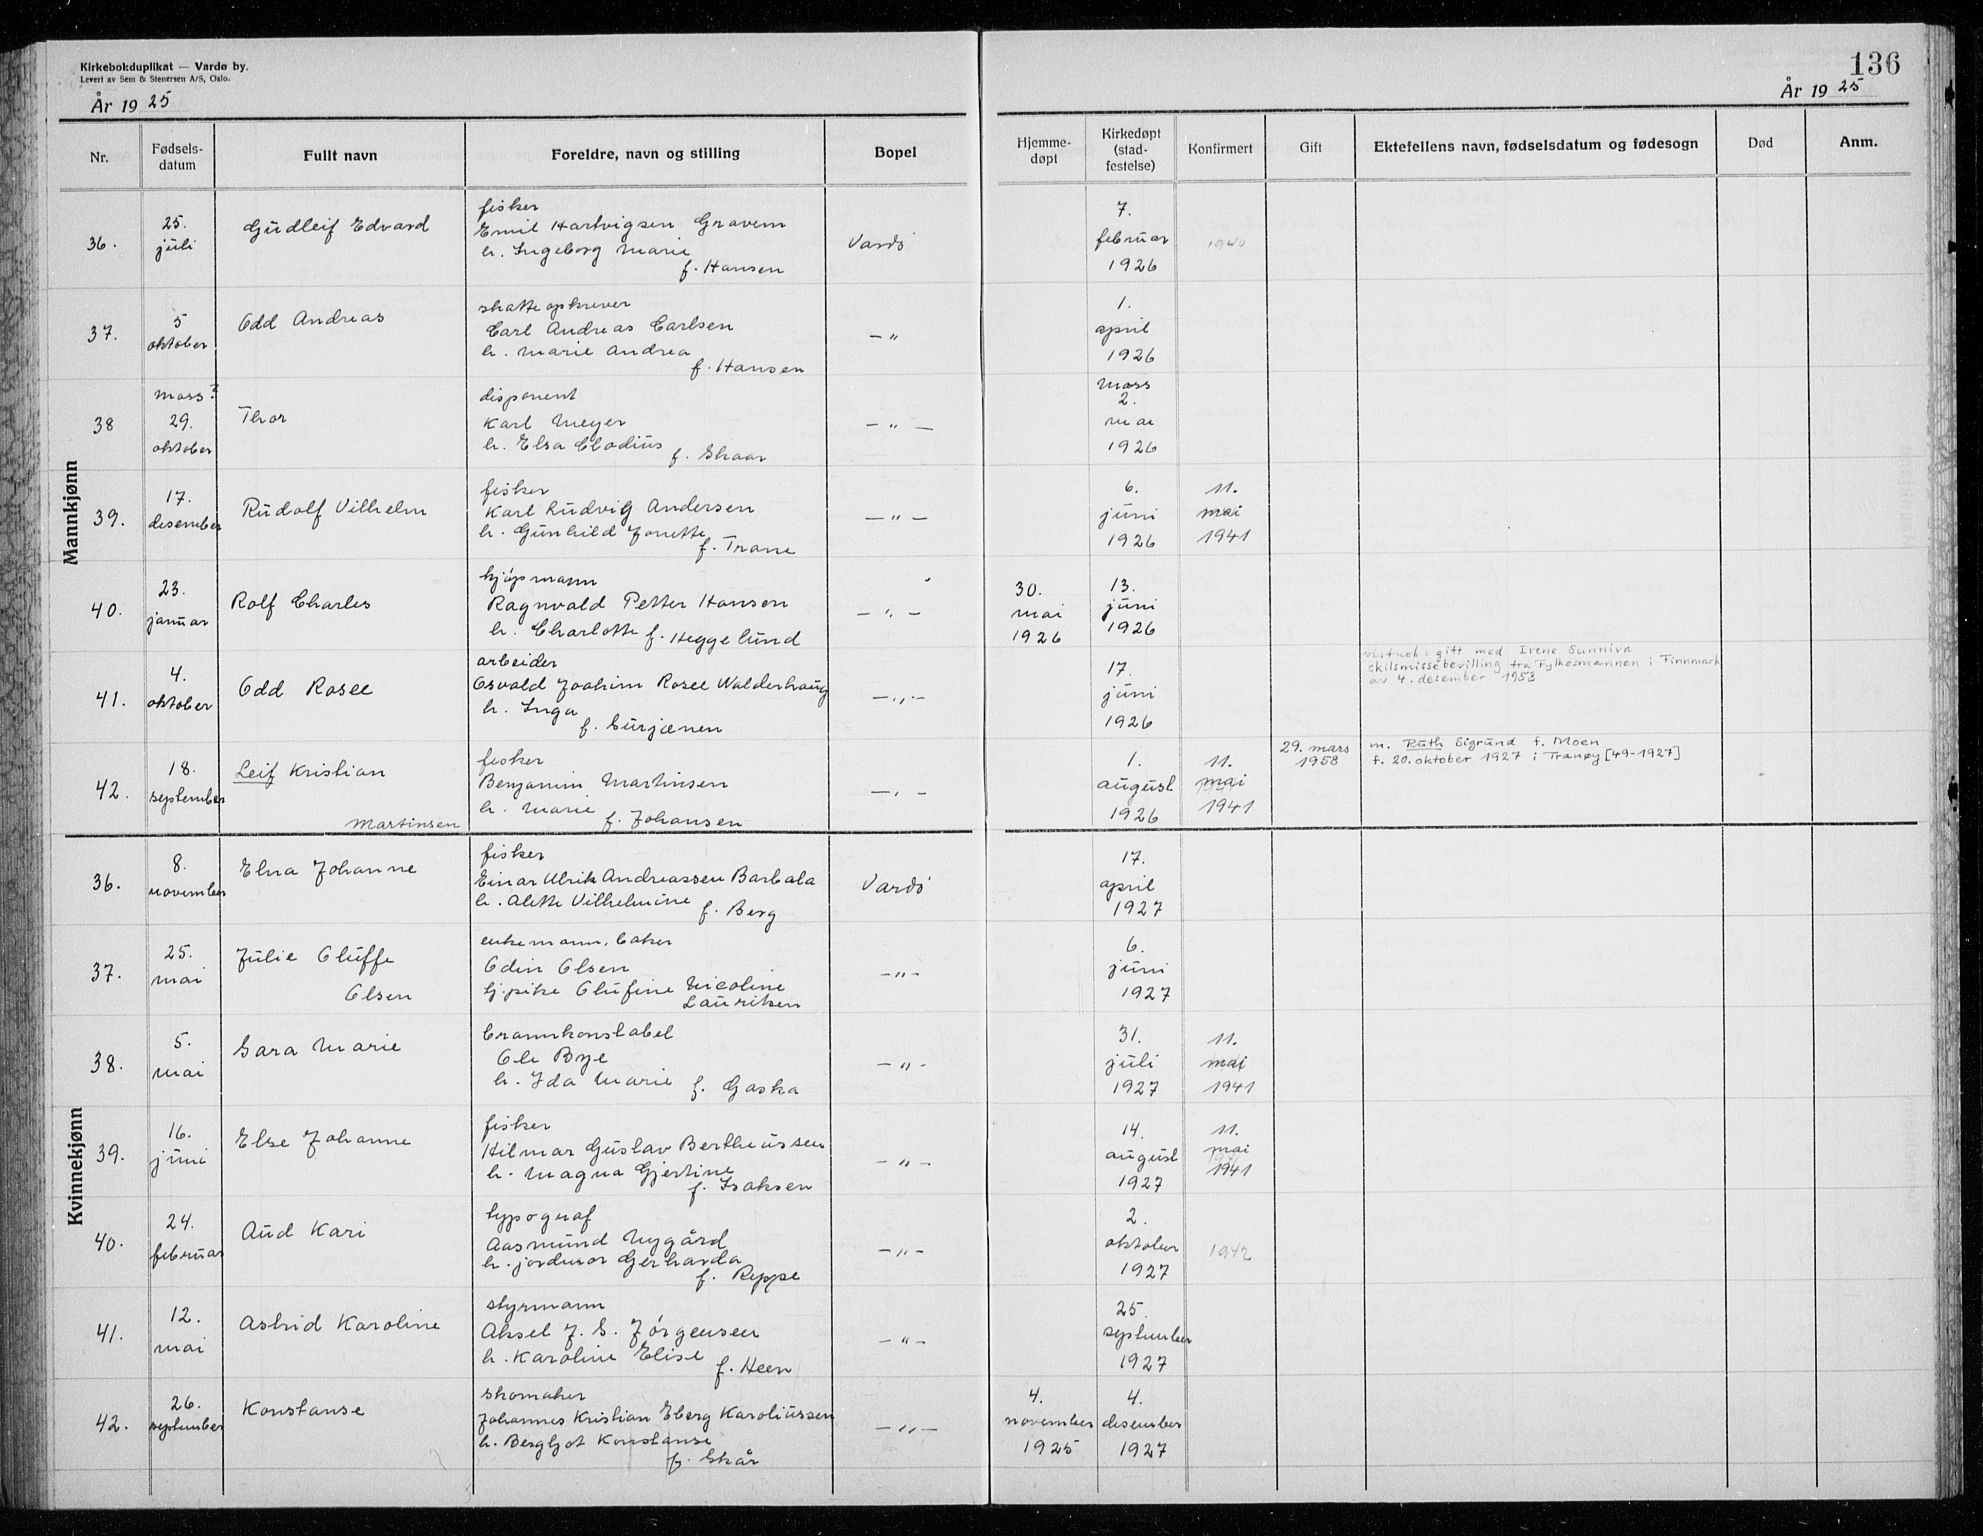 Kirkebokduplikat — Vardø by.
Levert av Sem & Stenersen A/S, Oslo.
År 1925
136
År 1925
Nr.
Fødsels-
datum
Fullt navn
Foreldre, navn og stilling
Bopel
Hjemme-
døpt
Kirkedøpt
(stad-
festelse)
Konfirmert
Gift
Ektefellens navn, fødselsdatum og fødesogn
Død
Anm.
Mannkjønn
36.
25.
juli
Gudleif Edvard
fisker
Emil Hartvigsen Gravem
h. Ingeborg Marie
f. Hansen
Vardö
7.
februar
1926
1940
37.
5
oktober
Odd Andreas
skatteopkrever
Carl Andreas Carlsen
h. Marie Andrea
f. Hansen
— "
1.
april
1926
38
moss?
29.
oktober
Thor
disponent
Karl Meyer
h. Elsa Clodius
f. Skaar
— " —
moss
2.
mai
1926
39.
17.
desember
Rudolf Vilhelm
fisker
Karl Ludvig Andersen
h. Gunhild Jonette
f. Trane
— " —
6.
juni
1926
11.
mai
1941
40.
23.
januar
Rolf Charles
kjöpmann
Ragnvald Petter Hansen
h. Charlotte f. Heggelund
— " —
30.
mai
1926
13.
juni
1926
41.
4.
oktober
Odd Rosee
arbeider
Osvald Joakim Rosee Walderhaug
h. Inga
f. Surjænen
— " —
17.
juni
1926
vistnok: gift med Irene Sunniva
skilsmissebevilling fra Fylkesmannen i Finnmark
av 4. desember 1953
42.
18.
september
Leif Kristian
Martinsen
fisker
Benjamin Martinsen
h. Marie
f. Johansen
— " —
1.
august
1926
11.
mai
1941
29. mars
1958
m. Ruth Sigrund f. Moen
f. 20. oktober 1927 i Tranøy [49-1927]
Kvinnekjønn
36.
8.
november
Elna Johanne
fisker
Einar Ulrik Andreassen Barbala
h. Alette Vilhelmine
f. Berg
Vardö
17.
april
1927
37.
25.
mai
Julie Oluffe
Olsen
enkemann, baker
Odin Olsen
tj. pike Olufine Nicoline
Lauritsen
— " —
6.
juni
1927
38.
5.
mai
Sara Marie
brannkonstabel
Ole Bye
h. Ida Marie f. Gaska
— " -
31.
juli
1927
11.
mai
1941
39.
16.
juni
Else Johanne
fisker
Hilmar Gustav Bertheussen
h. Magna Gjertine
f. Isaksen
— " —
14.
august
1927
11.
mai
1941
40.
24.
februar
Aud Kari
typograf
Aasmund Nygård
h. jordmor Gerharda
f. Reppe
— " —
2.
oktober
1927
1942
41.
12.
mai
Astrid Karoline
styrmann
Aksel J. S. Jørgensen
h. Karoline Elise
f. Heen
— " —
25.
september
1927
42.
26.
september
Konstanse
skomaker
Johannes Kristian Eberg Karoliussen
h. Bergljot Konstanse
f. Skår
— " —
4.
november
1925
4.
desember
1927